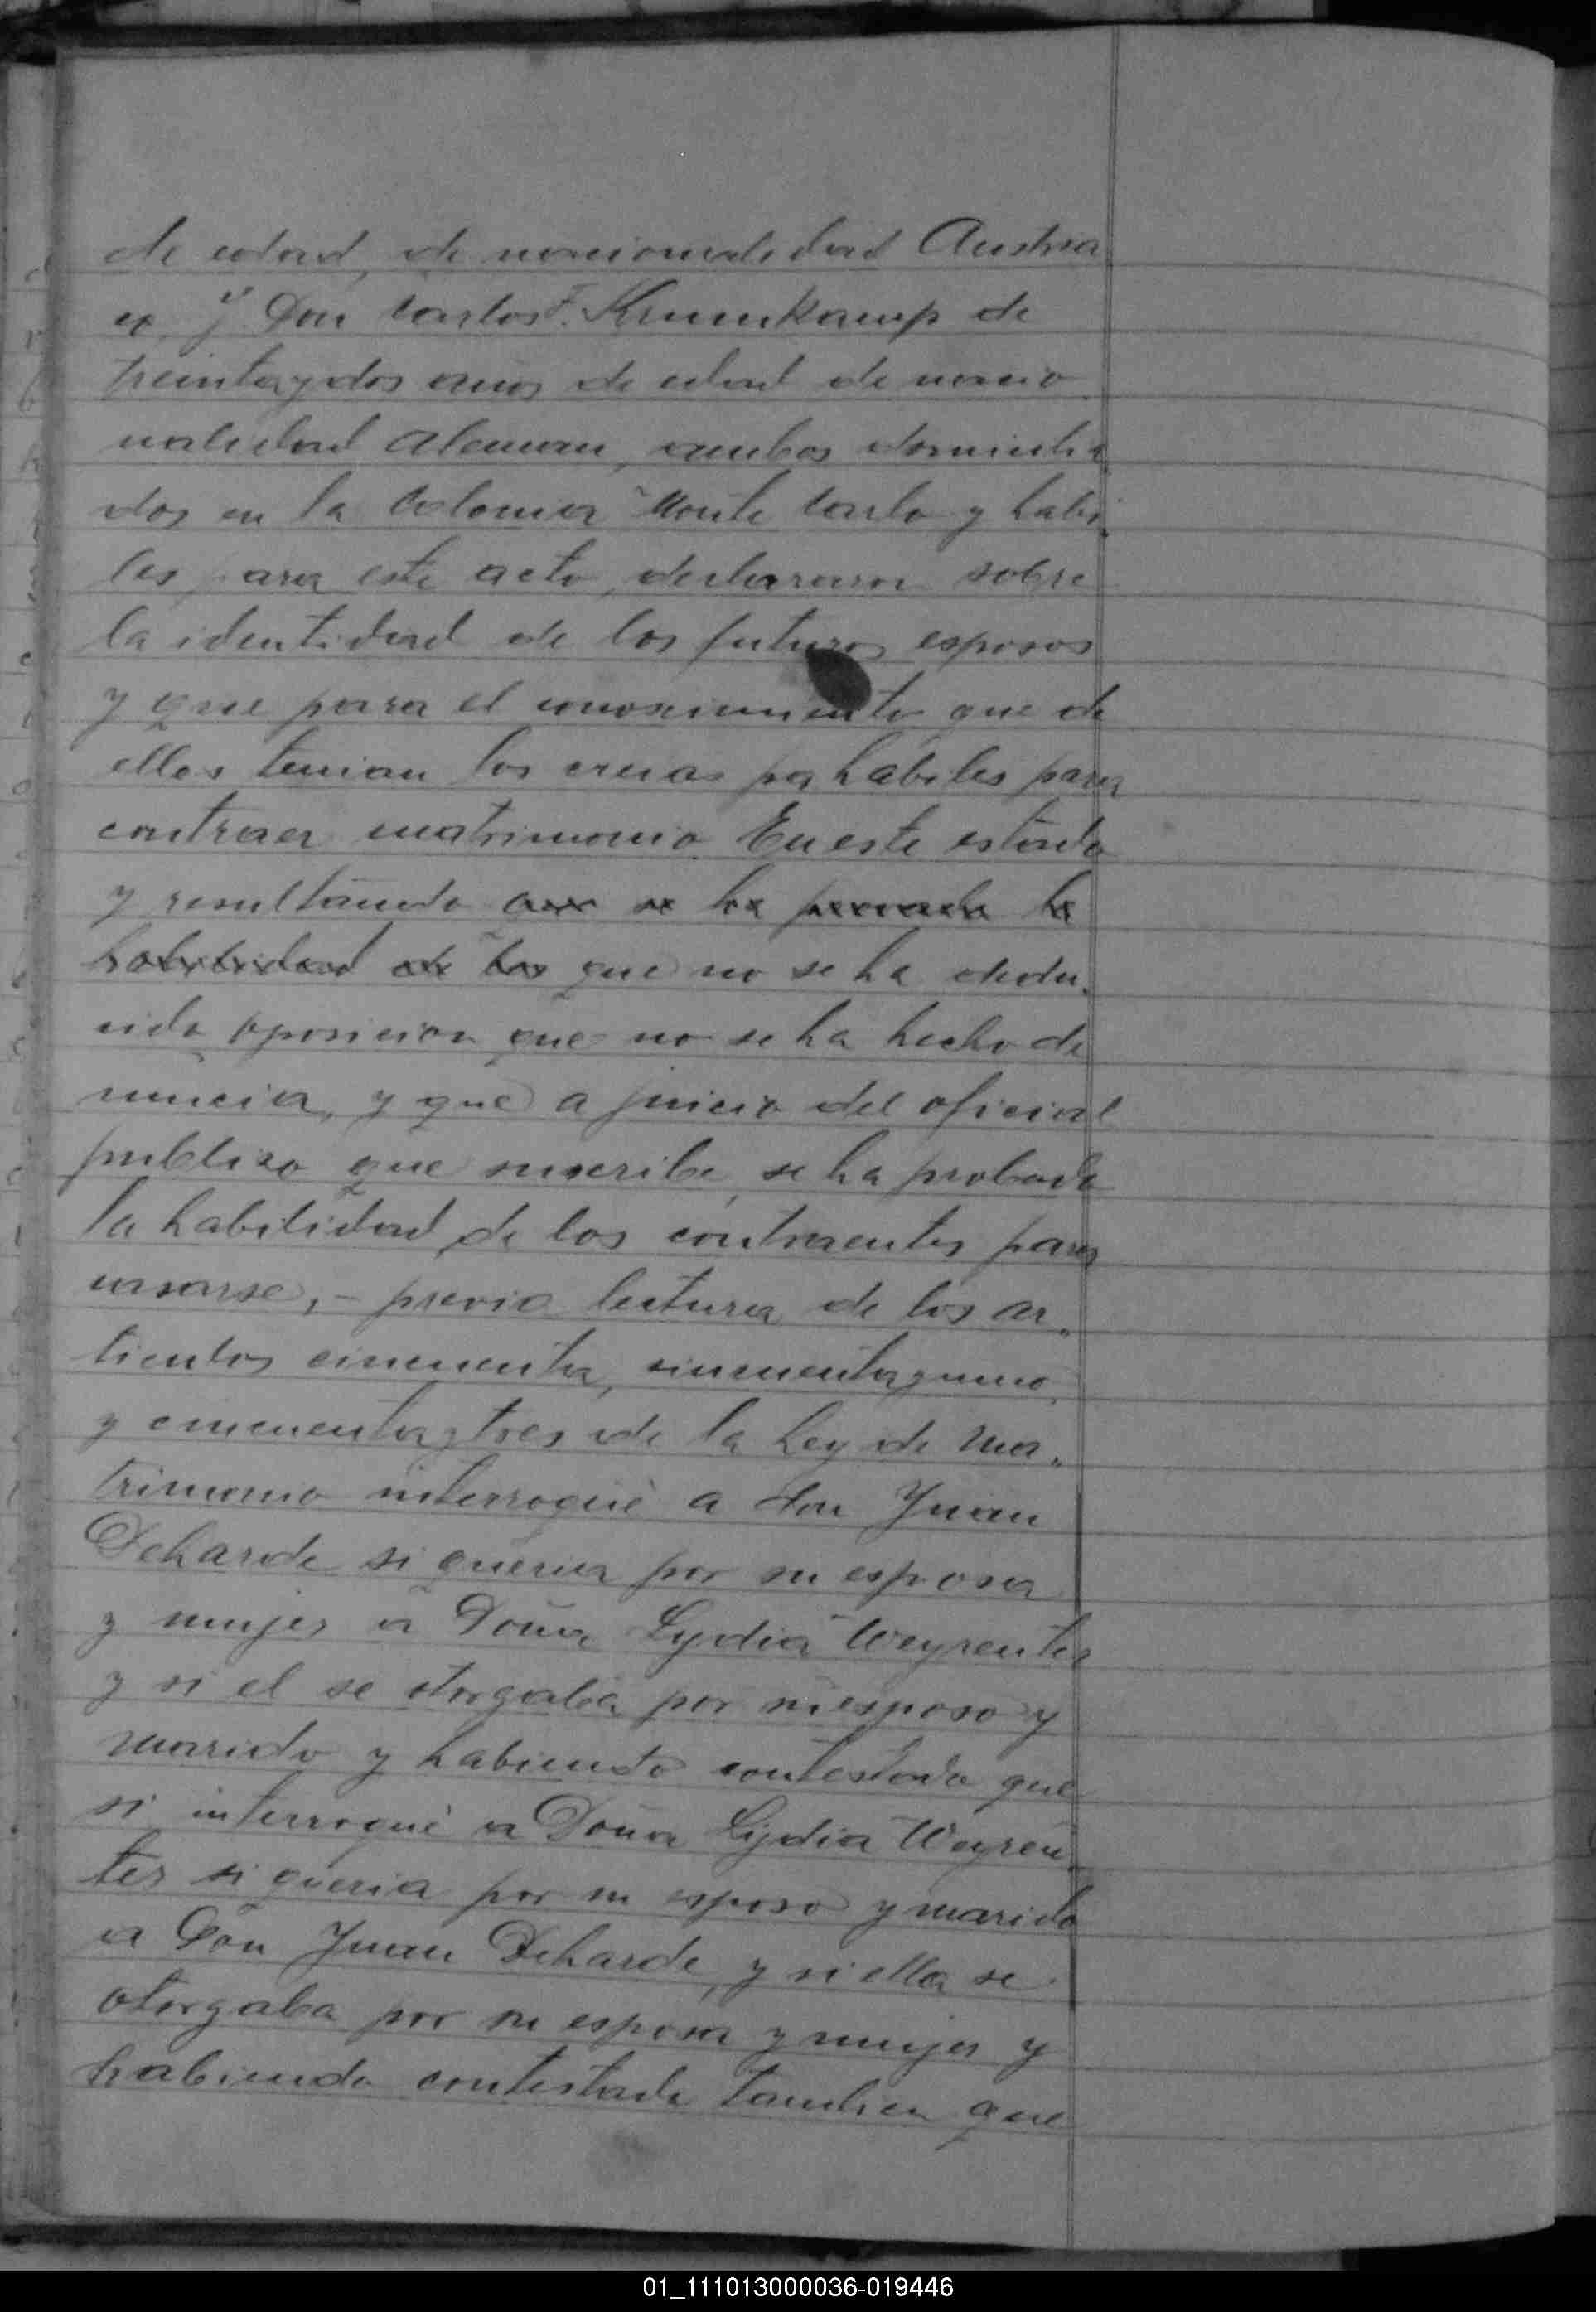 de edad, de nacionalidad Austria
ca, y Don Carlos F. Krumkamp de
treintaydos años de edad de nacio
nalidad Aleman, ambos domicilia
dos en la Colonia Monte Carlo y habi
les para este acto, declararon sobre
la identidad de los futuros esposos
y que para el conoscimiento que de
ellos tenian los creias por hábiles para
contraer matrimonio. En este estado
y resultando que se ha provado la
habilidad de los que no se ha dedu-
cido oposicion que no se ha hecho de
nuncia, y que a juicio del oficial
publico que suscribe, se ha probado
la habilidad de los contraentes para
casarse, - previa lectura de los ar„
ticulos cincuenta, cincuentayuno
y cincuentaytres de la Ley de Ma„
trimonio interrogué a don Juan
Deharde si queria por su esposa
y mujer a Doña Lydia Weyreuter
y si el se otorgaba por su esposo y
marido y habiendo contestado que
si interrogué a Doña Lydia Weyreu
ter si queria por su esposo y marido
a Don Juan Deharde, y si ella se
otorgaba por su esposa y mujer y
habiendo contestado tambien que
01_111013000036-019446